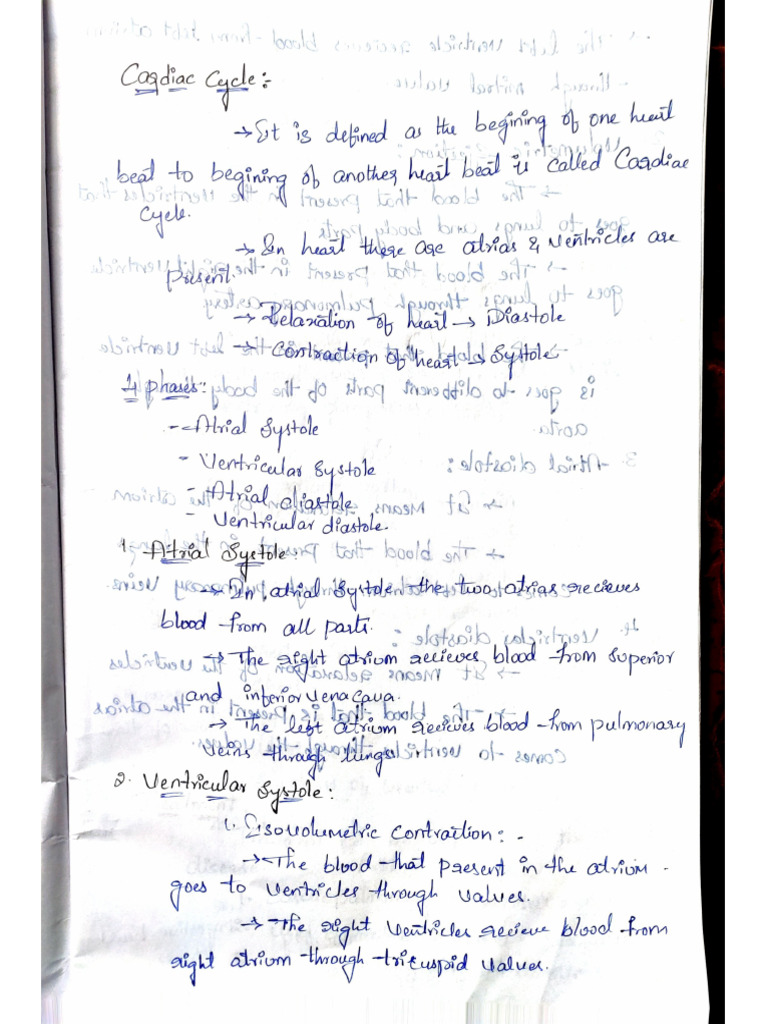 Cardiac Cycle:
→ It is defined as the begining of one heart
beat to begining of another heart beat is called Cardiac
cycle.
→ In heart there are atrias & ventricles are
present.
→ Relaxation of heart → Diastole
→ Contraction of heart → Systole
4 phases:
- Atrial systole
- Ventricular systole
- Atrial diastole
- Ventricular diastole.
1. Atrial Systole:
→ In, atrial systole the two atrias recieves
blood from all parts.
→ The right atrium recieves blood from superior
and inferior vena cava.
→ The left atrium recieves blood from pulmonary
veins through lungs
2. Ventricular systole:
1. Isovolumetric contraction: -
→ The blood that present in the atrium
goes to ventricles through valves.
→ The right ventricles recieve blood from
right atrium through tricuspid valves.